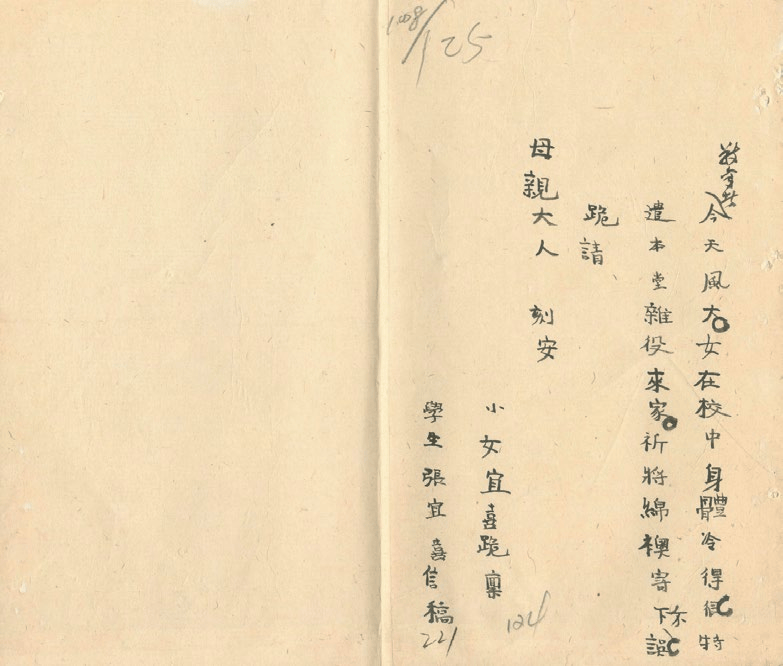 108/125
今天風大。女在校中身體冷得很特
遣本堂雜役來家。祈將綿襖寄下不誤
跪請
母親大人　刻安
小女宜喜跪稟
124
學生張宜喜信稿
221